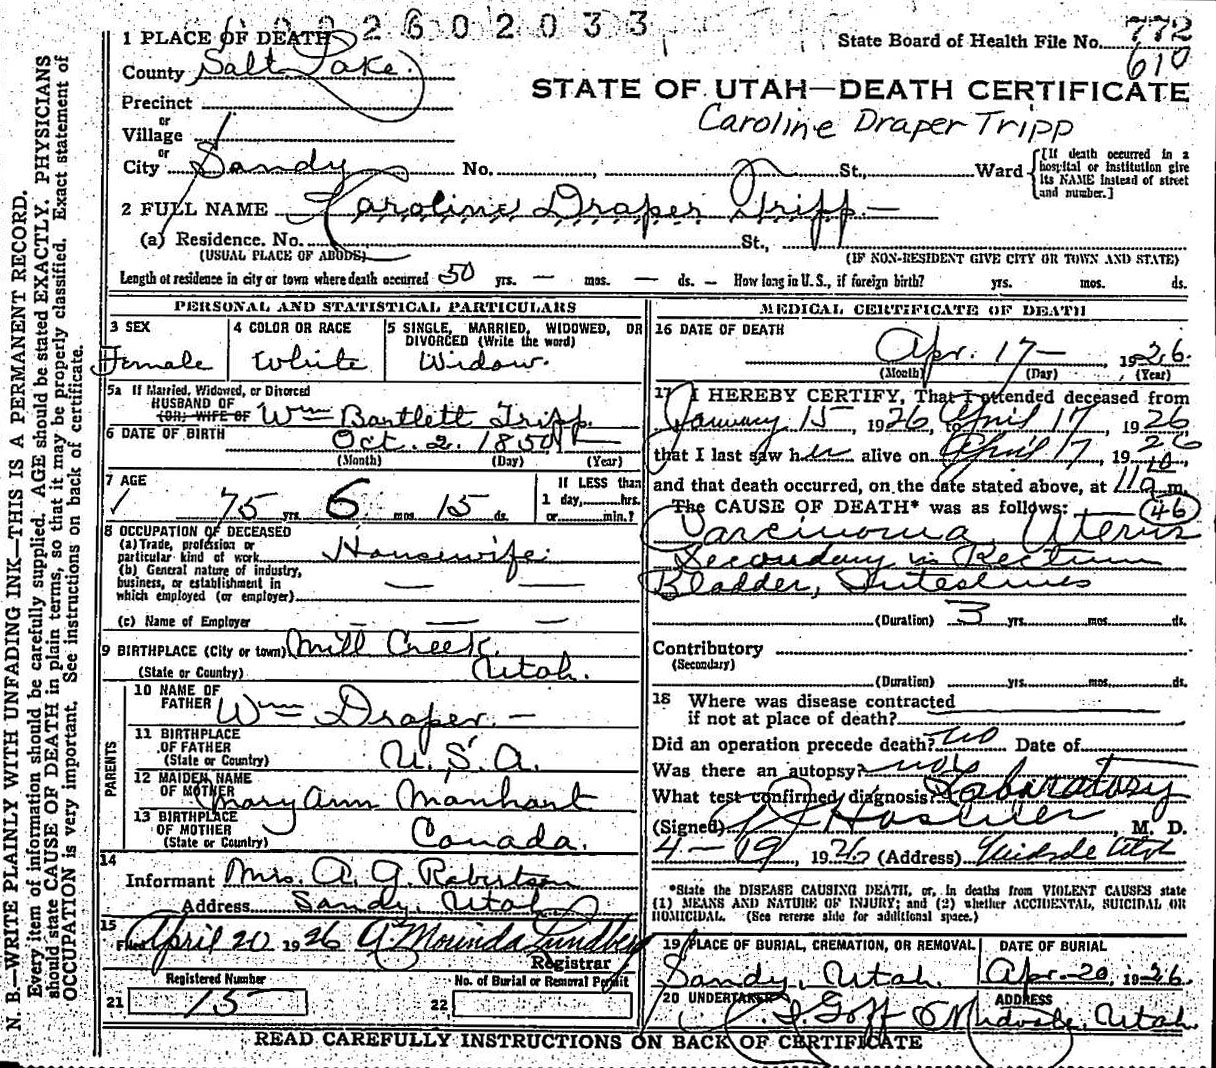 002602033
1 PLACE OF DEATH
State Board of Health File No. 772
610
County Salt Lake.
STATE OF UTAH—DEATH CERTIFICATE
Precinct
or
Village
Caroline Draper Tripp
or
City Sandy No. St., Ward
[If death occurred in a hospital or institution give its NAME instead of street and number.]
2 FULL NAME Caroline Draper Tripp—
(a) Residence. No. St.,
(USUAL PLACE OF ABODE)
(IF NON-RESIDENT GIVE CITY OR TOWN AND STATE)
Length of residence in city or town where death occurred 50 yrs. — mos. — ds. — How long in U. S., if foreign birth? yrs. mos. ds.
PERSONAL AND STATISTICAL PARTICULARS
3 SEX
Female
4 COLOR OR RACE
White
5 SINGLE, MARRIED, WIDOWED, OR DIVORCED (Write the word)
Widow.
5a If Married, Widowed, or Divorced
HUSBAND OF
(OR) WIFE OF Wm Bartlett Tripp.
6 DATE OF BIRTH Oct. 2. 1850
(Month) (Day) (Year)
7 AGE
75 yrs. 6 mos. 15 ds.
If LESS than
1 day,......hrs.
or......min.?
8 OCCUPATION OF DECEASED
(a) Trade, profession or
particular kind of work Housewife.
(b) General nature of industry,
business, or establishment in
which employed (or employer) — —
(c) Name of Employer — — —
9 BIRTHPLACE (City or town) Mill Creek.
(State or Country) Utah.
PARENTS
10 NAME OF
FATHER Wm Draper. —
11 BIRTHPLACE
OF FATHER
(State or Country) U. S. A.
12 MAIDEN NAME
OF MOTHER Mary Ann Manhart
13 BIRTHPLACE
OF MOTHER
(State or Country) Canada.
14
Informant Mrs. A. G. Robertson
Address Sandy, Utah
15
Filed April 20 1926 Mourinda Lundberg
Registrar
Registered Number
21 15
No. of Burial or Removal Permit
22
MEDICAL CERTIFICATE OF DEATH
16 DATE OF DEATH
Apr. 17— , 1926.
(Month) (Day) (Year)
17 I HEREBY CERTIFY, That I attended deceased from
January 15, 1926, to April 17, 1926
that I last saw her alive on April 17, 1926
and that death occurred, on the date stated above, at 11 10 a m.
The CAUSE OF DEATH* was as follows: 46
Carcinoma, Uterus
Secondary in Rectum
Bladder, Intestines
(Duration) 3 yrs. mos. ds.
Contributory
(Secondary)
(Duration) yrs. mos. ds.
18 Where was disease contracted
if not at place of death?
Did an operation precede death? no Date of
Was there an autopsy? no
What test confirmed diagnosis? Laboratory
(Signed) , M. D.
4—19, 1926 (Address) Midvale Utah
*State the DISEASE CAUSING DEATH, or, in deaths from VIOLENT CAUSES state
(1) MEANS AND NATURE OF INJURY; and (2) whether ACCIDENTAL, SUICIDAL OR
HOMICIDAL. (See reverse side for additional space.)
19 PLACE OF BURIAL, CREMATION, OR REMOVAL
Sandy, Utah.
DATE OF BURIAL
Apr-20, 1926
20 UNDERTAKER Goff
ADDRESS
Midvale, Utah.
READ CAREFULLY INSTRUCTIONS ON BACK OF CERTIFICATE
N. B.—WRITE PLAINLY WITH UNFADING INK—THIS IS A PERMANENT RECORD.
Every item of information should be carefully supplied. AGE should be stated EXACTLY. PHYSICIANS
should state CAUSE OF DEATH in plain terms, so that it may be properly classified. Exact statement of
OCCUPATION is very important. See instructions on back of certificate.